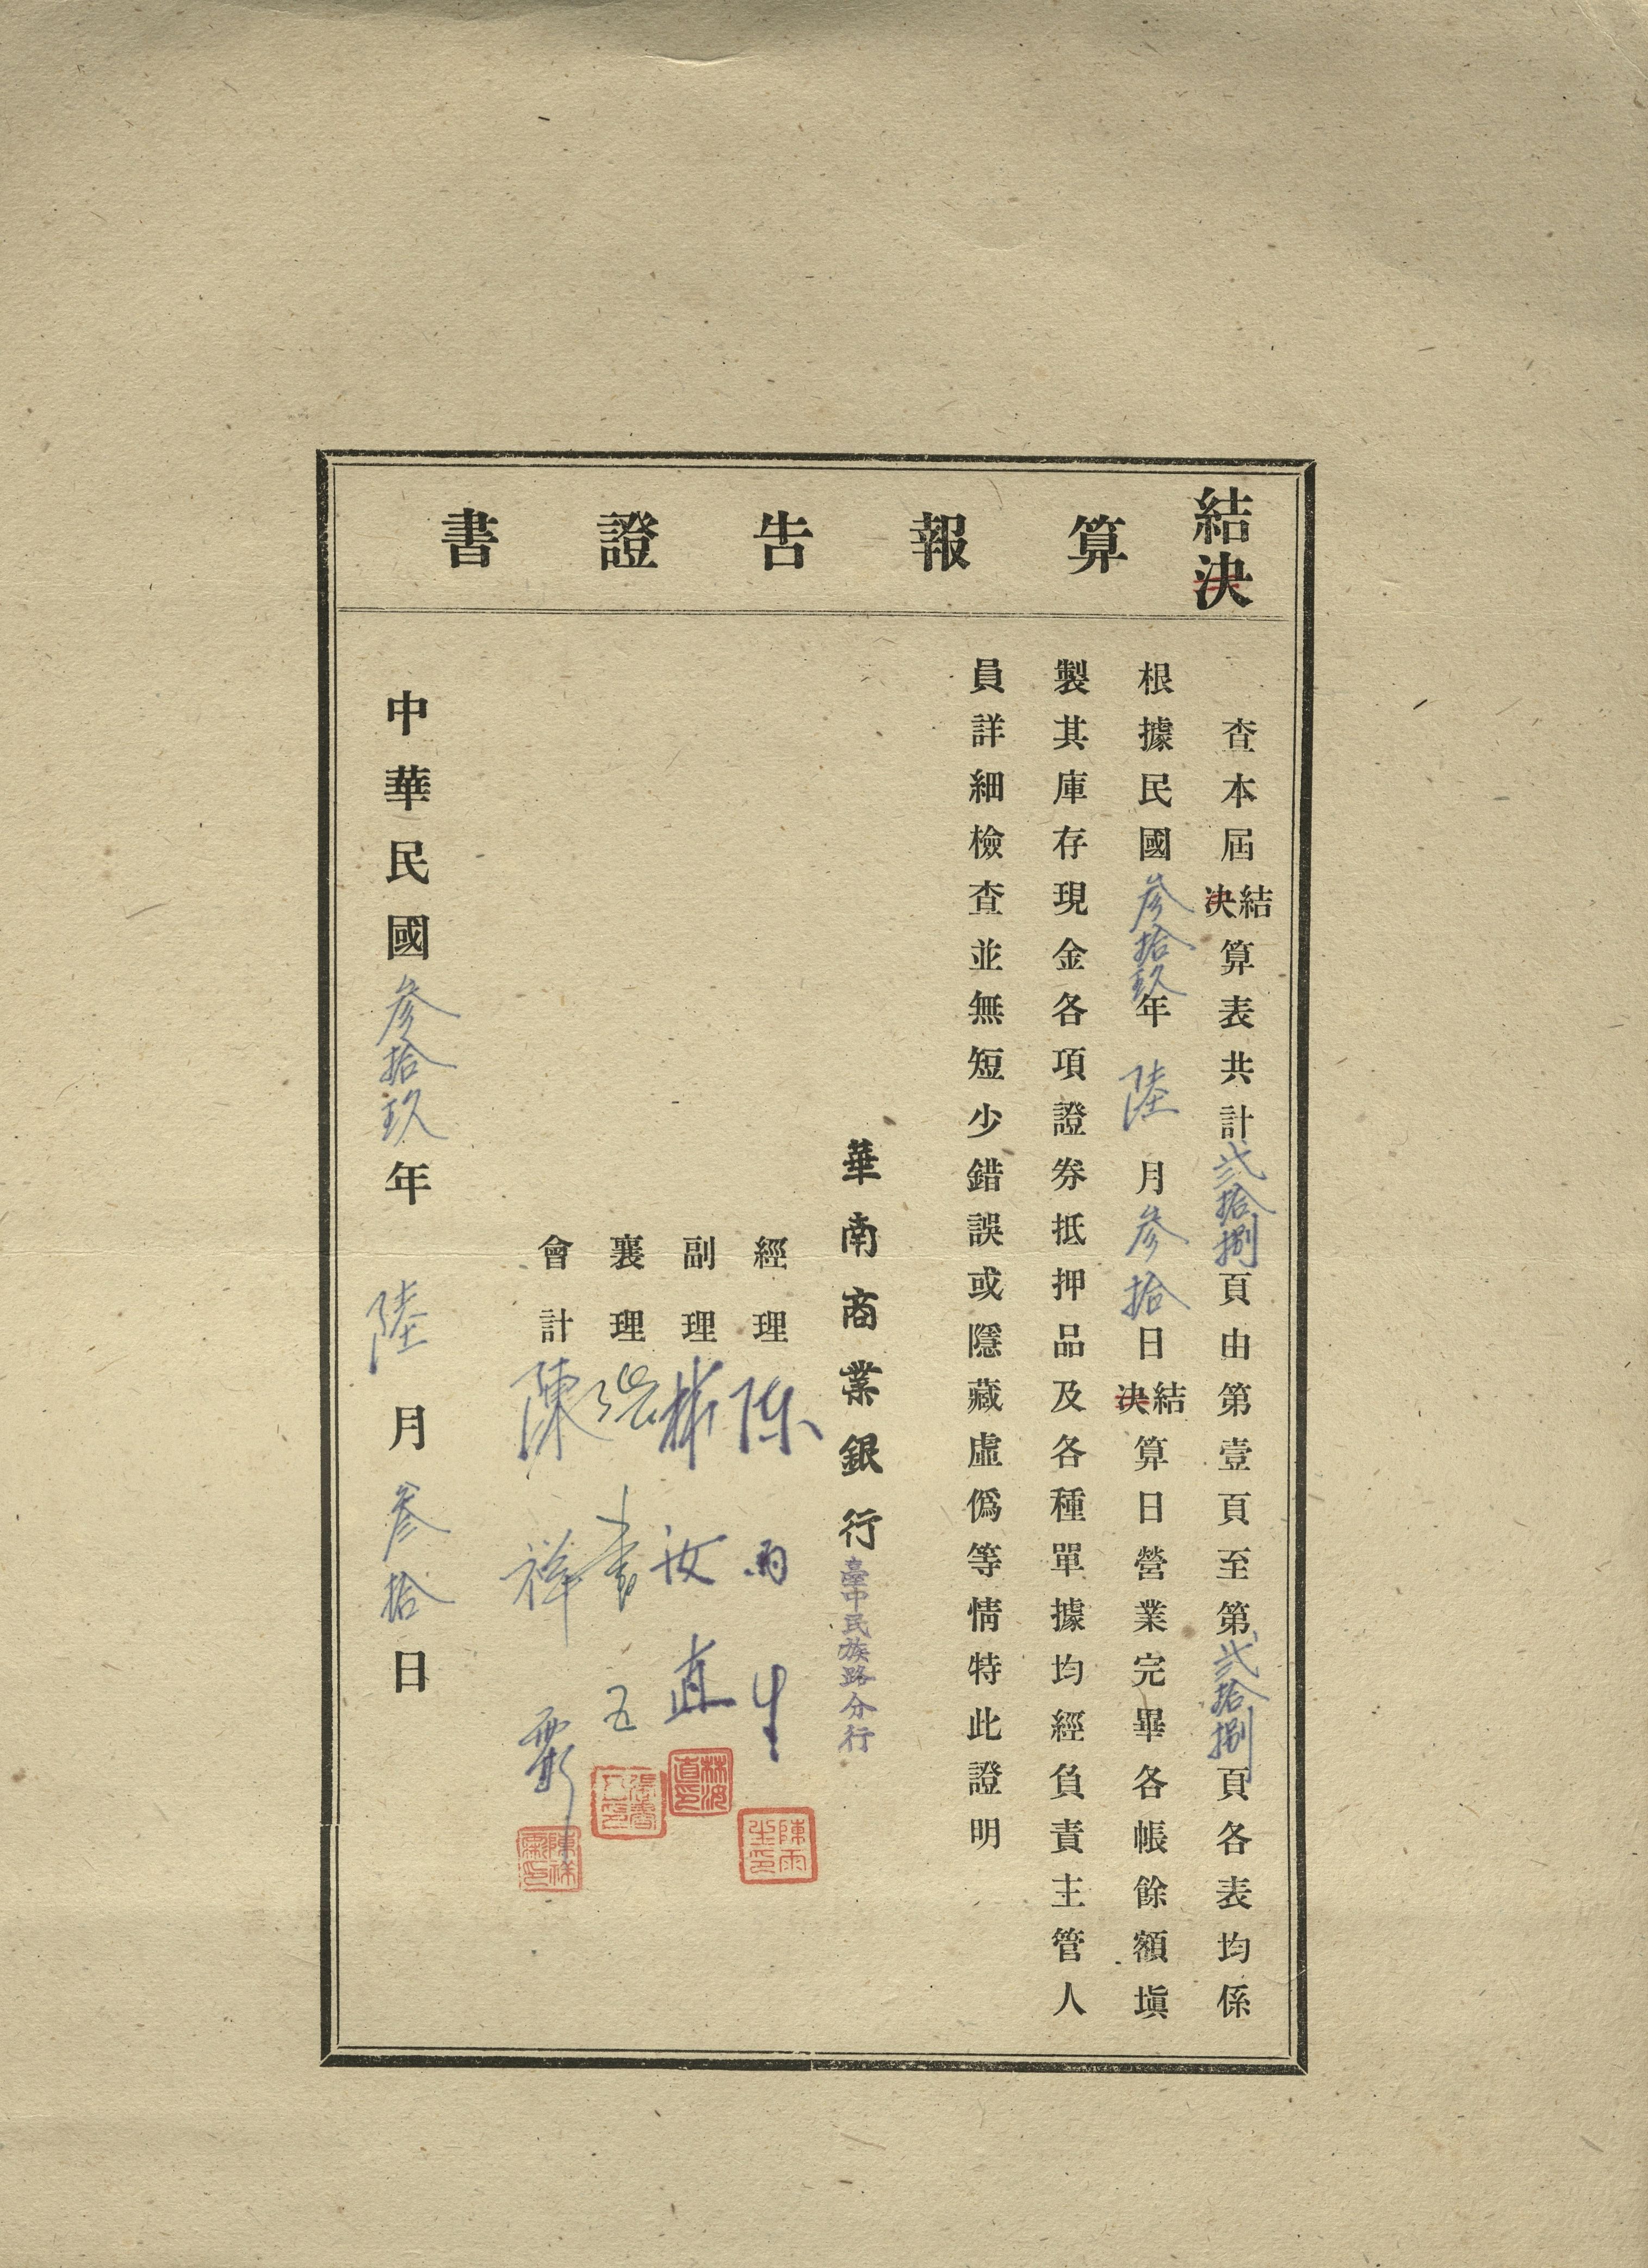 結決算報告證書
查本屆結決算表共計弍拾捌頁由第壹頁至第弍拾捌頁各表均係
根據民國參拾玖年陸月參拾日結決算日營業完畢各帳餘額塡
製其庫存現金各項證券抵押品及各種單據均經負責主管人
員詳細檢查並無短少錯誤或隱藏虛僞等情特此證明
華南商業銀行臺中民族路分行
經理 陳雨生
陳雨生印
副理 林汝直
林汝直印
襄理 張書五
張書五印
會計 陳祥
中華民國參拾玖年陸月參拾日